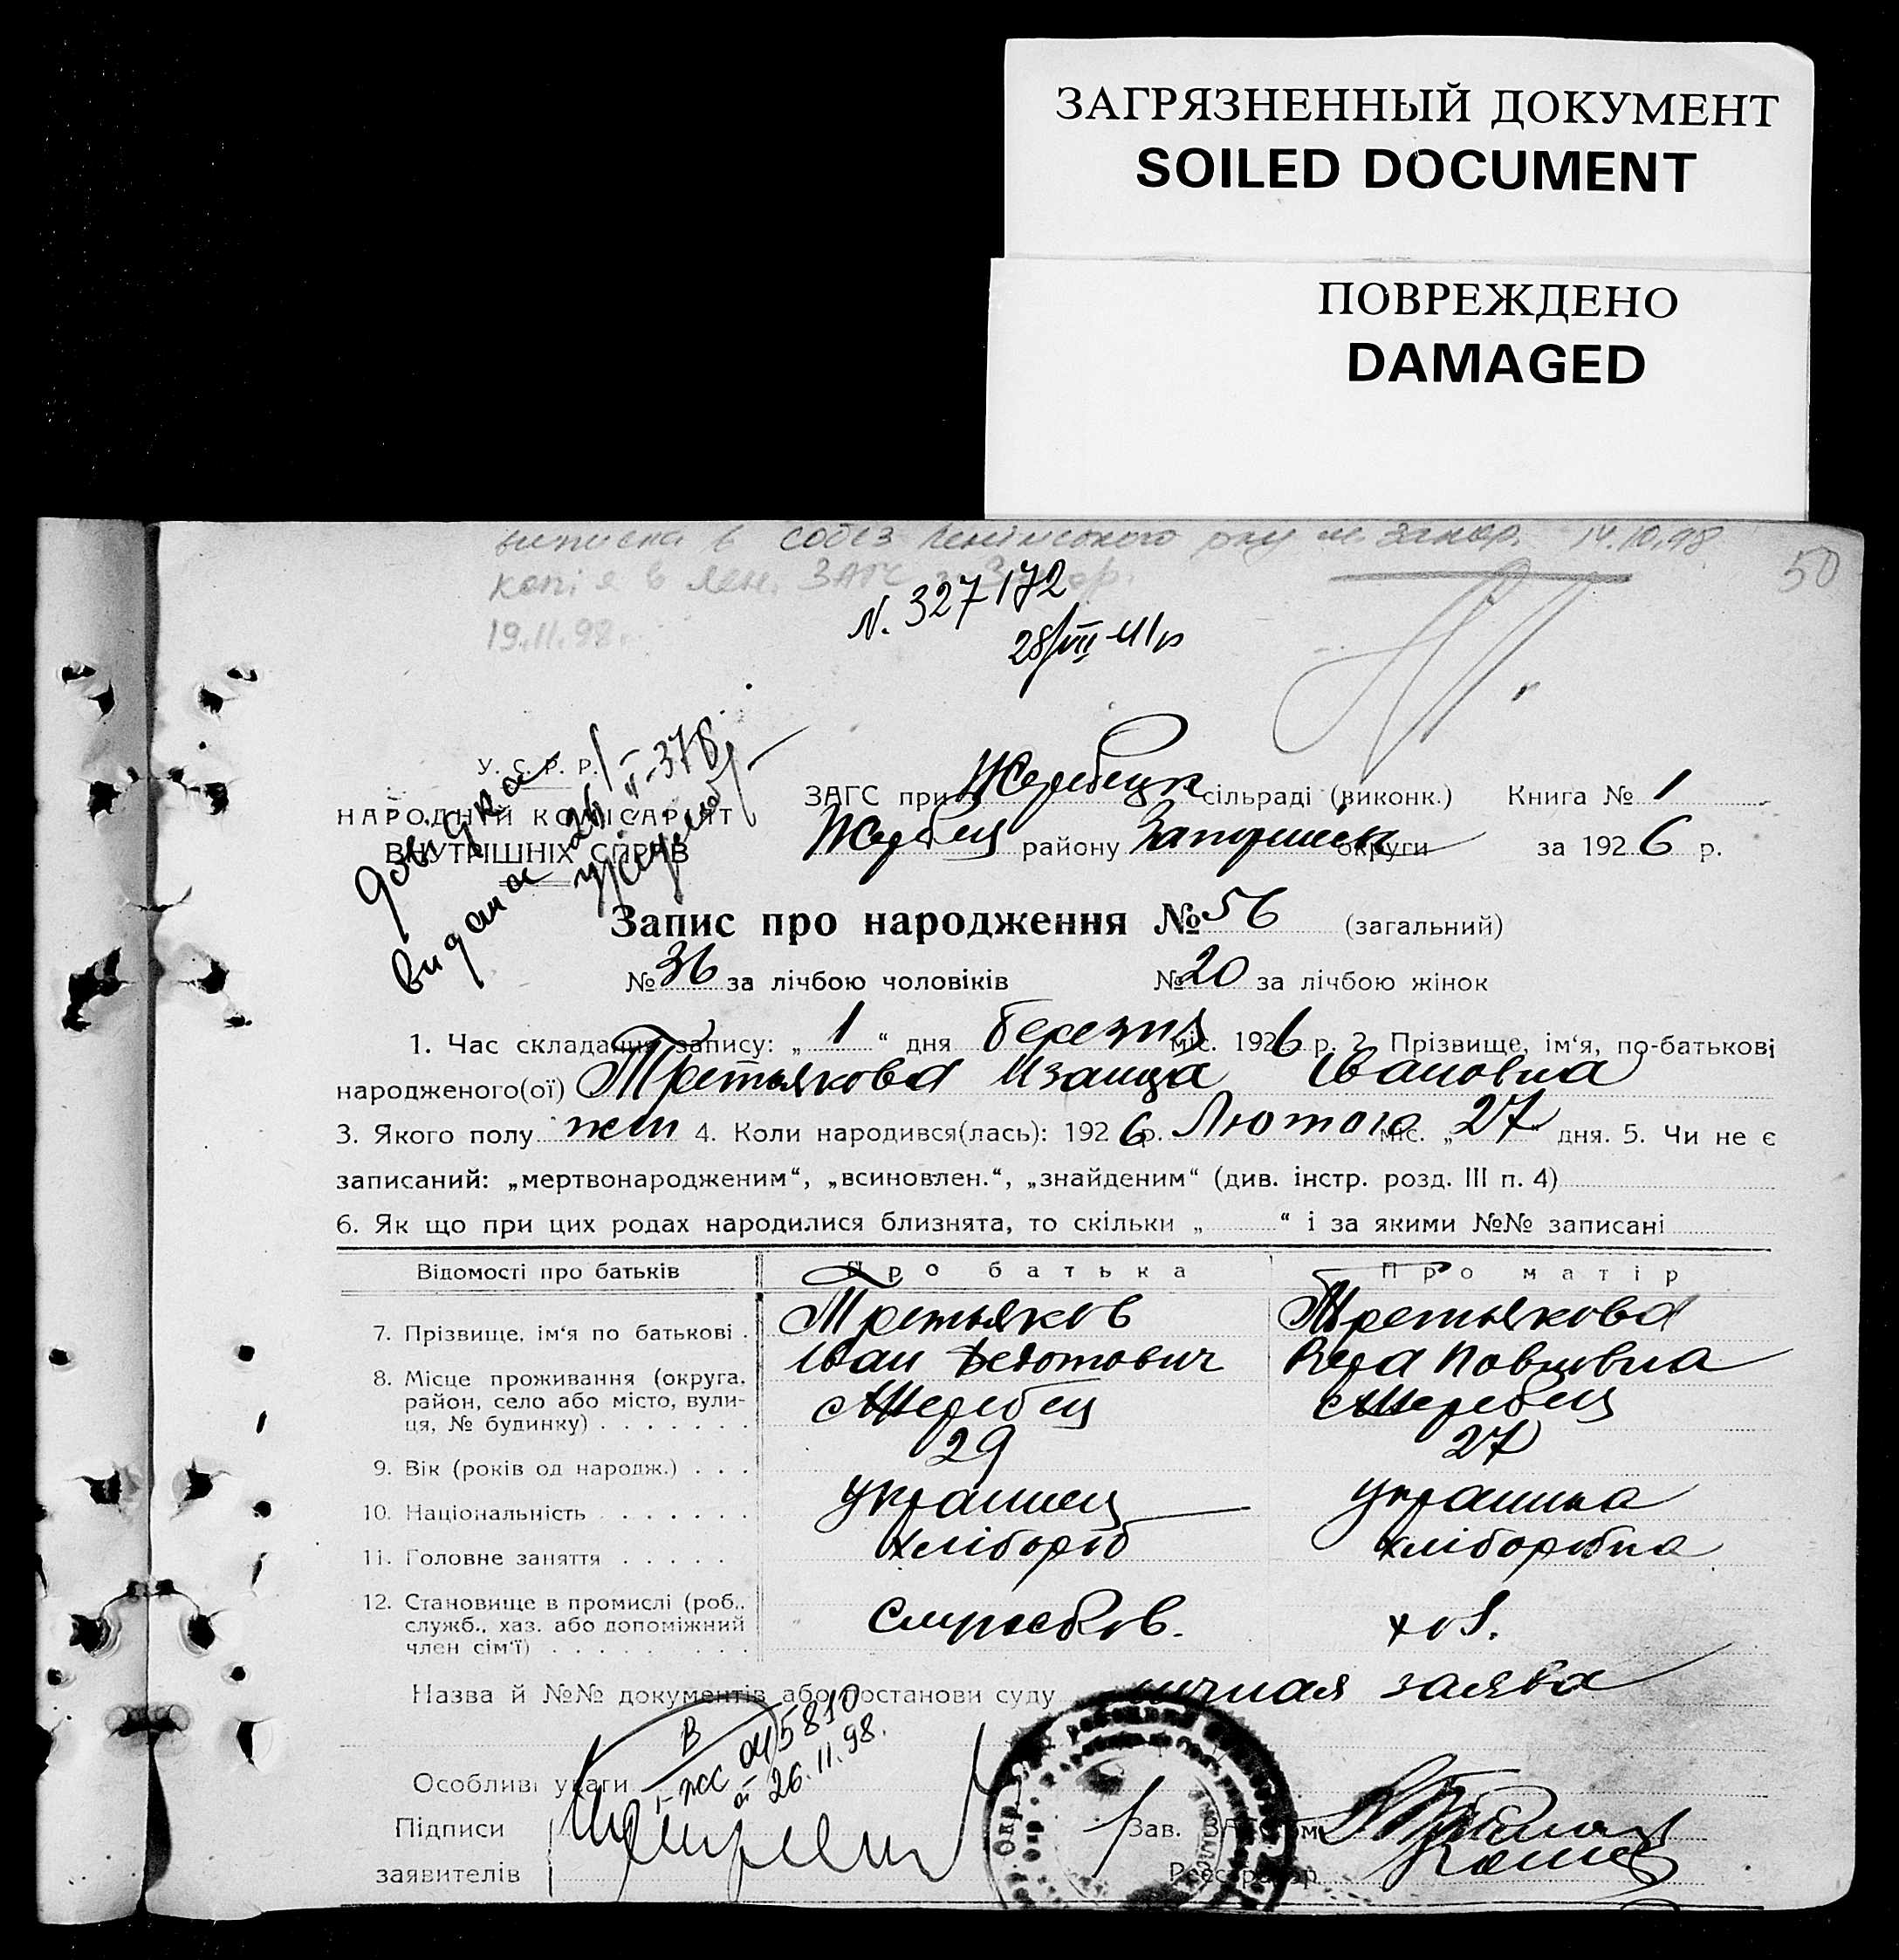 ЗАГРЯЗНЕННЫЙ ДОКУМЕНТ
SOILED DOCUMENT
ПОВРЕЖДЕНО
DAMAGED
виписка в собез Ленінського р-ну м. Запор. 14.10.98
50
копія в Лен. ЗАГС
19.11.98
N. 327172
28/VIII-41р
У. С. Р. Р.
НАРОДНІЙ КОМІСАРІЯТ
ВНУТРІШНІХ СПРАВ
довідка
видана
ЗАГС при Жеребецк сільраді (виконк.) Книга № 1
Жеребец району Запоріжск округи за 1926 р.
Запис про народження № 56 (загальний)
№ 36 за лічбою чоловіків № 20 за лічбою жінок
1. Час складання запису: „ 1 “ дня березня міс. 1926 р. 2. Прізвище, ім‘я, по-батькові
народженого(ої) Третьякова Ізаица Івановна
3. Якого полу жен 4. Коли народився(лась): 1926 р. Лютого міс. „ 27 “ дня. 5. Чи не є
записаний: „мертвонародженим“, „всиновлен.“, „знайденим“ (див. інстр. розд. III п. 4)
6. Як що при цих родах народилися близнята, то скільки „ “ і за якими №№ записані
Відомості про батьків Про батька Про матір
7. Прізвище, ім‘я по батькові . Третьяков Третьякова
Іван Федотович Вера Повловна
8. Місце проживання (округа, район, село або місто, вули-
ця, № будинку) . . . . . . . с Жеребец с Жеребец
9. Вік (років од народж.) . . . 29 27
10. Національність . . . . . . . украинец украинка
11. Головне заняття . . . . . хлібороб хліборобка
12. Становище в промислі (роб.,
служб., хаз. або допоміжний
член сім‘ї) . . . . . . . . .
Назва й №№ документів або постанови суду личная заява
Особливі уваги
I-ЖС 045810
от 26.11.98.
Підписи
заявителів
Зав. ЗАГС‘ом
Реєстратор